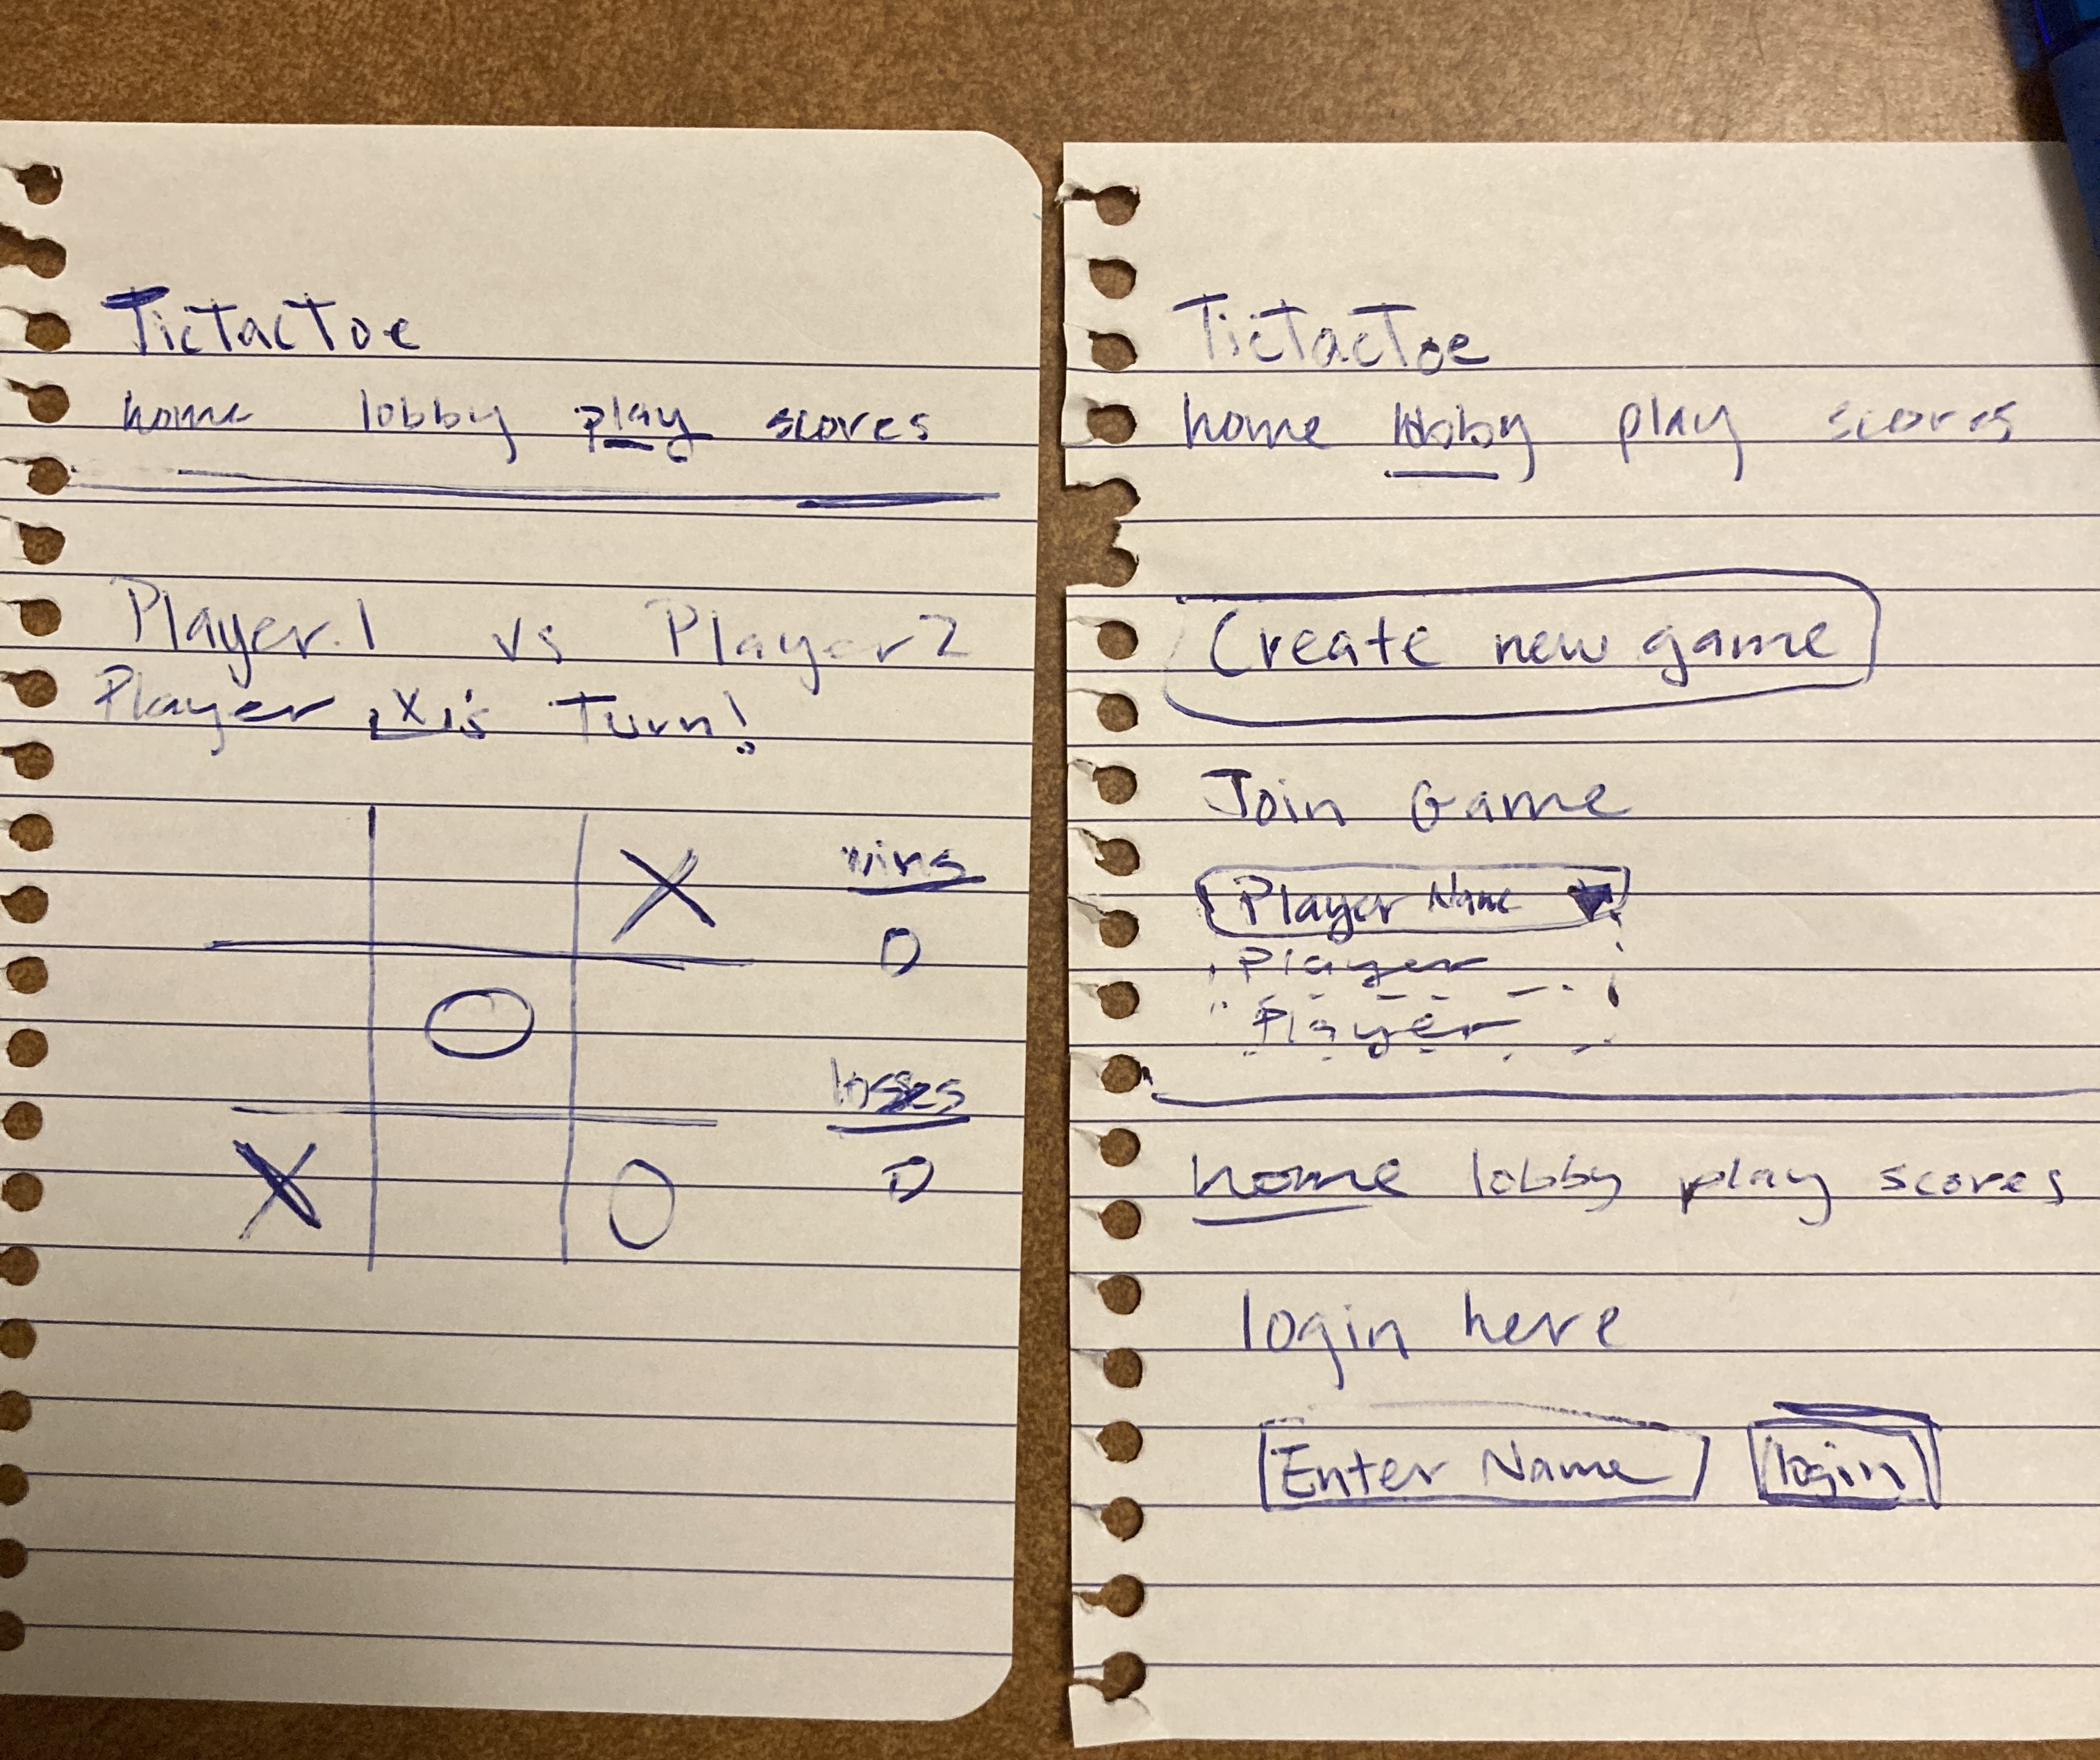 TicTacToe
home lobby play scores
Player 1 vs Player 2
Player X's Turn!
X
wins
0
O
losses
0
X O
TicTacToe
home lobby play scores
Create new game
Join Game
Player Name
Player
Player
home lobby play scores
login here
Enter Name login